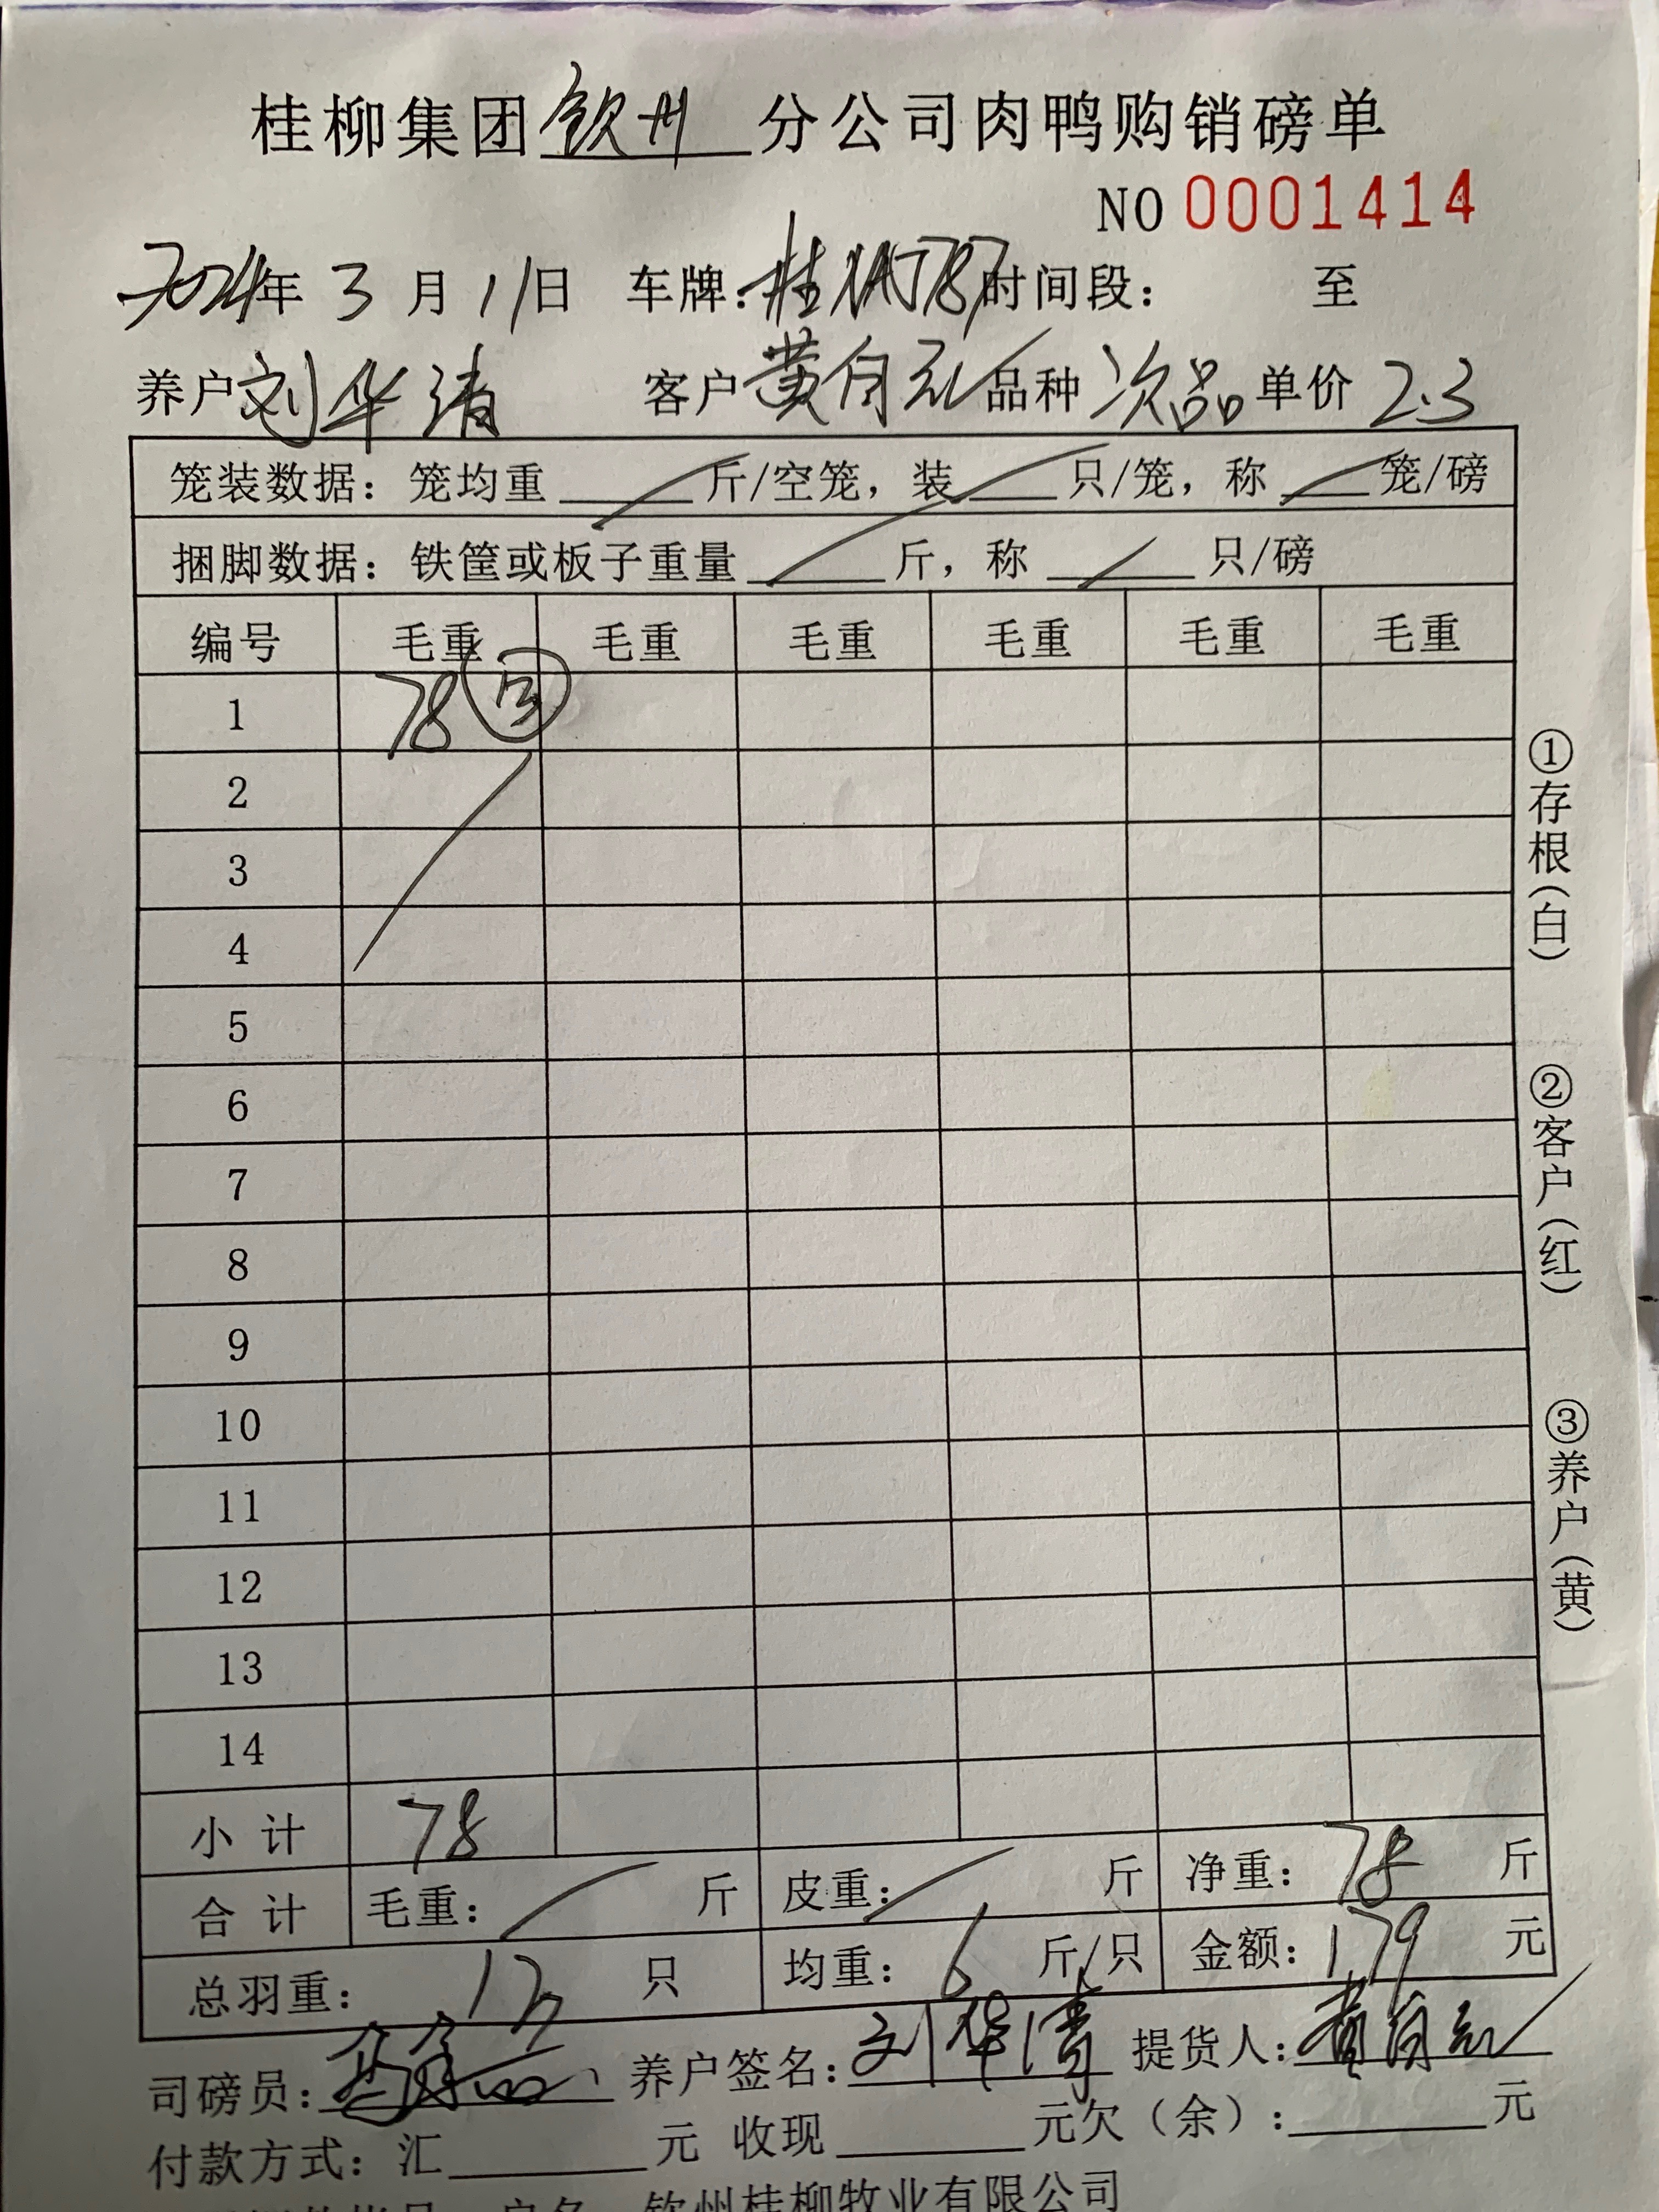 桂柳集团钦州分公司肉鸭购销磅单
NO 0001414
2024年 3 月 11日 车牌: 时间段: 至
养户 刘华清 客户 黄自 品种 次品 单价 2.3
笼装数据: 笼均重 斤/空笼, 装 只/笼, 称 笼/磅
捆脚数据: 铁筐或板子重量 斤, 称 只/磅
编号 毛重 毛重 毛重 毛重 毛重 毛重
1 78
2
3
4
5
6
7
8
9
10
11
12
13
14
小 计 78
合 计 毛重: 斤 皮重: 斤 净重: 78 斤
总羽重: 只 均重: 6 斤/只 金额: 179 元
司磅员: 养户签名: 刘华清 提货人: 黄自
付款方式: 汇 元 收现 元欠(余): 元
户名 钦州桂柳牧业有限公司
①存根(白)
②客户(红)
③养户(黄)